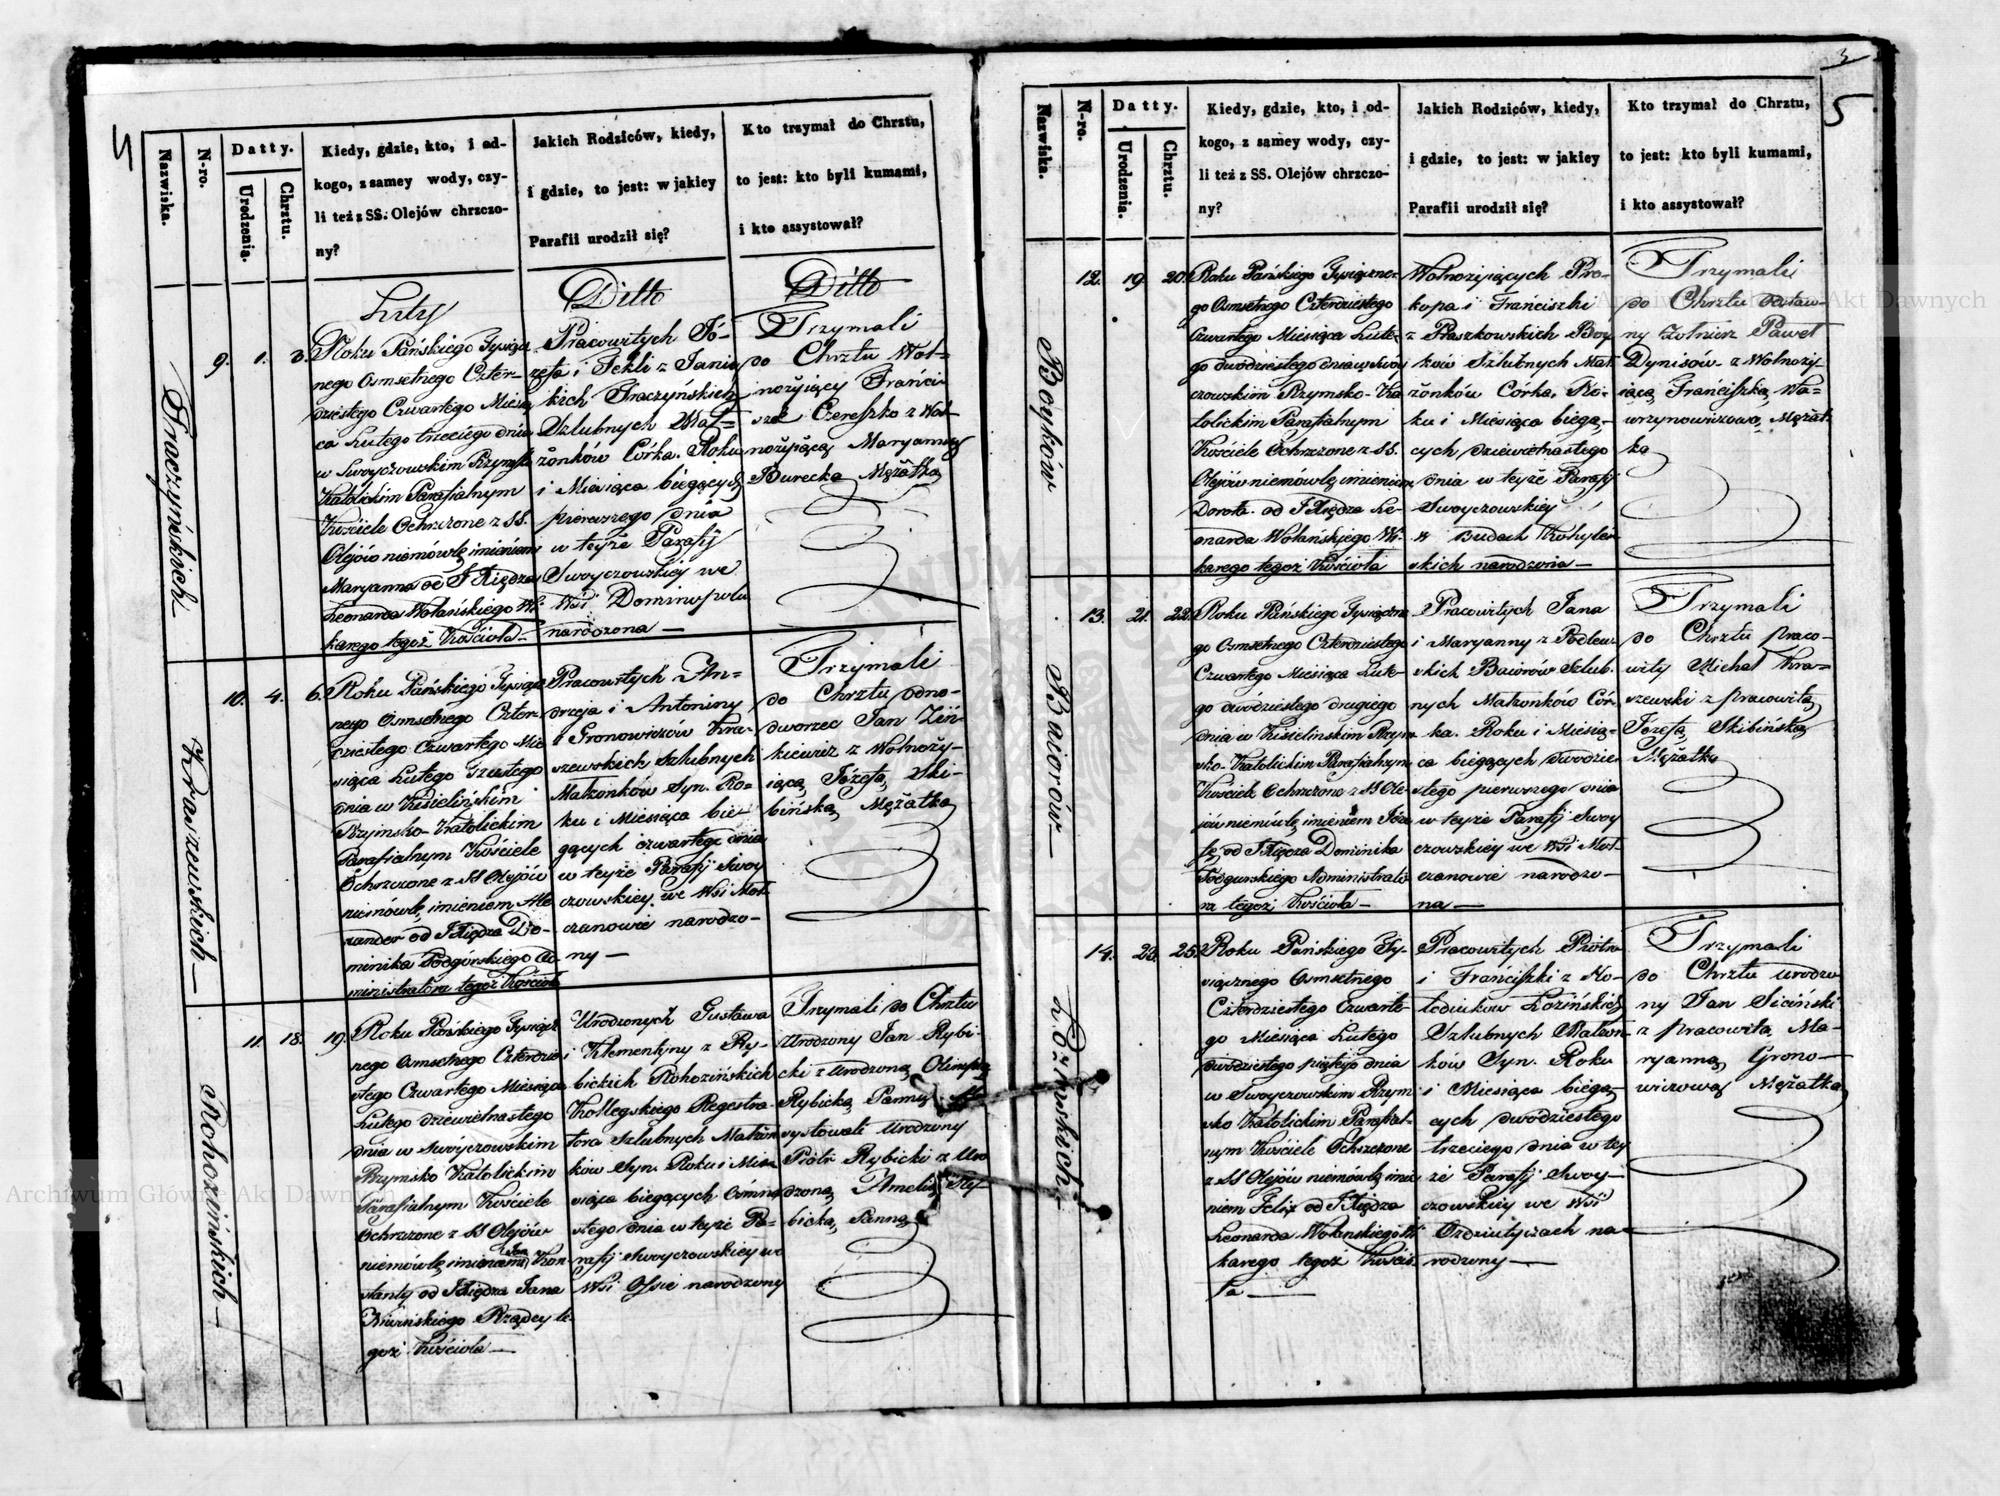 4
Nazwiska.
N-ro.
Datty.
Urodzenia.
Chrztu.
Kiedy, gdzie, kto, i od-
kogo, z samey wody, czy-
li też z SS. Olejów chrzczo-
ny?
Jakich Rodziców, kiedy,
i gdzie, to jest: w jakiey
Parafii urodził się?
Kto trzymał do Chrztu,
to jest: kto byli kumami,
i kto assystował?
Luty
Ditto
Ditto
Traczyńskich
9. 1. 3.
Roku Pańskiego Tysiącz
nego Osmsetnego Czter-
dziestego Czwartego Miesią
ca Lutego trzeciego dnia
w Swoyczowskim Rzymsko
Katolickim Parafialnym
Kościele Ochrzczone z SS.
Olejów niemówlę imieniem
Maryanna od Xiędza
Leonarda Wołańskiego Wi-
karego tegoż Kościoła
Pracowitych Jó-
zefa i Tekli z Janic
kich Traczyńskich
Szlubnych Mał=
żonków Córka. Roku
i Miesiąca bieżących
pierwszego dnia
w teyże Parafij
Swoyczowskiey we
Wsi Dominopolu
narodzona —
Trzymali
do Chrztu Wol=
nożyjący Franci
szek Czereszko z Wol
nożyjącą Maryanną
Burecką Mężatką
Kraszewskich —
10. 4. 6.
Roku Pańskiego Tysiącz
nego Osmsetnego Czter-
dziestego Czwartego Mie
siąca Lutego szóstego
dnia w Kisielińskim
Rzymsko-Katolickim
Parafialnym Kościele
Ochrzczone z SS Olejów
niemówlę imieniem Ale
xander od Xiędza Do-
minika Podgurskiego Ad
ministratora tegoż Kościoła
Pracowitych An-
drzeja i Antoniny
z Gronowiczów Kra-
szewskich Szlubnych
Małżonków Syn. Ro-
ku i Miesiąca bie-
gących czwartego dnia
w teyże Parafij Swoy
czowskiey we Wsi Moł-
czanowie narodzo-
ny —
Trzymali
do Chrztu odno-
dworzec Jan Zin-
kiewicz z Wolnoży-
jącą Józefą Ski-
bińską Mężatką
Rohozińskich —
11. 18. 19.
Roku Pańskiego Tysiącz
nego Osmsetnego Czterdzie
stego Czwartego Miesiąca
Lutego dziewietnastego
dnia w Swoyczowskim
Rzymsko Katolickim
Parafialnym Kościele
Ochrzczone z SS Olejów
niemówlę imionami Jan Kon-
stanty od Xiędza Jana
Rządcy te-
goż Kościoła —
Urodzonych Gustawa
i Klementyny z Ry-
bickich Rohozińskich
Kollegskiego Regestra-
tora Szlubnych Małżon
ków Syn. Roku i Mie-
siąca bieżących Ośmna
stego dnia w teyże Pa-
rafij Swoyczowskiey we
Wsi Ossie narodzony
Trzymali do Chrztu
Urodzony Jan Rybi-
cki z Urodzoną Olimpią
Rybicką Panną. As
systowali Urodzony
Piotr Rybicki z Uro
dzoną Amelią Ry-
bicką Panną
3
5
Nazwiska.
N-ro.
Datty.
Urodzenia.
Chrztu.
Kiedy, gdzie, kto, i od-
kogo, z samey wody, czy-
li też z SS. Olejów chrzczo-
ny?
Jakich Rodziców, kiedy,
i gdzie, to jest: w jakiey
Parafii urodził się?
Kto trzymał do Chrztu,
to jest: kto byli kumami,
i kto assystował?
Boyków
12. 19. 20.
Roku Pańskiego Tysiączne-
go Osmsetnego Czterdziestego
Czwartego Miesiąca Lute-
go dwódziestego dnia w Swoy
czowskim Rzymsko-Ka
tolickim Parafialnym
Kościele Ochrzczone z SS.
Olejów niemówlę imieniem
Dorota od Xiędza Le-
onarda Wołańskiego Wi-
karego tegoż Kościoła
Wolnożyjących Pro-
kopa i Franciszki
z Ptaszkowskich Boy
ków Szlubnych Mał
żonków Córka. Ro-
ku i Miesiąca bieżą-
cych dziewietnastego
dnia w teyże Parafij
Swoyczowskiey
w Budach Kohyleń
skich narodzona —
Trzymali
do Chrztu odstaw-
ny Żołnierz Paweł
Dynisów z Wolnoży-
jącą Franciszką Wa-
wrzynowiczową Mężat-
ką
Baiorów —
13. 21. 22.
Roku Pańskiego Tysiączne
go Osmsetnego Czterdziestego
Czwartego Miesiąca Lute-
go dwódziestego drugiego
dnia w Kisielińskim Rzym
sko-Katolickim Parafialnym
Kościele Ochrzczone z SS Ole-
jów niemówlę imieniem Józe
fa od Xiędza Dominika
Podgurskiego Administrato
ra tegoż Kościoła —
Pracowitych Jana
i Maryanny z Podlew-
skich Baiorów Szlub-
nych Małżonków Cór-
ka. Roku i Miesią-
ca bieżących dwódzie-
stego pierwszego dnia
w teyże Parafij Swoy
czowskiey we Wsi Moł-
czanowie narodzo-
na —
Trzymali
do Chrztu praco-
wity Michał Kra-
szewski z pracowitą
Józefą Skibińską
Mężatką
Łozińskich —
14. 23. 25.
Roku Pańskiego Ty-
siącznego Osmsetnego
Czterdziestego Czwarte-
go Miesiąca Lutego
dwódziestego piątego dnia
w Swoyczowskim Rzym
sko Katolickim Parafial-
nym Kościele Ochrzczone
z SS Olejów niemówlę imie
niem Felix od Xiędza
Leonarda Wołańskiego Wi
karego tegoż Kościo-
ła —
Pracowitych Piotra
i Franciszki z Ko-
łodiuków Łozińskich
Szlubnych Małżon-
ków Syn. Roku
i Miesiąca bieżą-
cych dwódziestego
trzeciego dnia w tey
że Parafij Swoy-
czowskiey we Wsi
Ozdziutyczach na-
rodzony —
Trzymali
do Chrztu urodzo
ny Jan Siciński
z pracowitą Ma-
ryanną Grono-
wiczową Mężatką
Archiwum Główne Akt Dawnych
Archiwum Główne Akt Dawnych